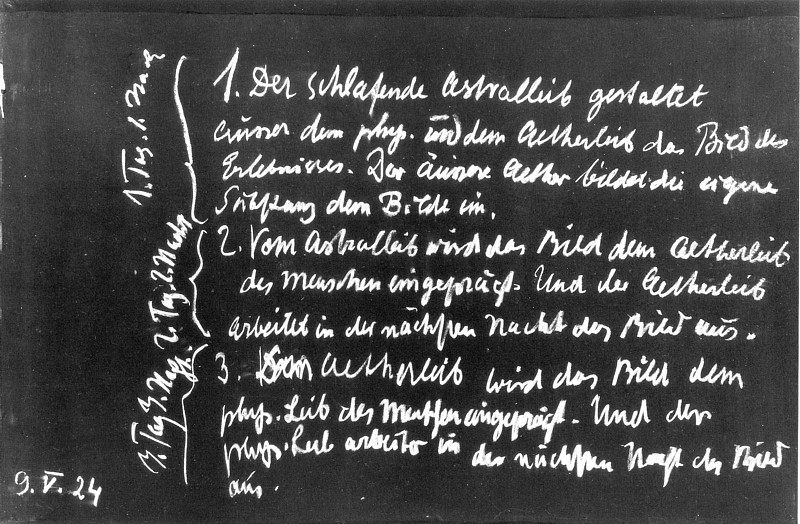 1. Tag. 1. Nacht
1. Der schlafende Astralleib gestaltet
ausser dem phys. und dem Aetherleib das Bild des
Erlebnisses. Der äussere Aether bildet die eigene
Substanz dem Bilde ein.
2. Tag 2. Nacht
2. Vom Astralleib wird das Bild dem Aetherleib
des Menschen eingeprägt. Und der Aetherleib
arbeitet in der nächsten Nacht das Bild aus.
3. Tag 3. Nacht.
3. Vom Aetherleib wird das Bild dem
phys. Leib des Menschen eingeprägt. Und der
phys. Leib arbeitet in der nächsten Nacht das Bild
aus.
9. V. 24